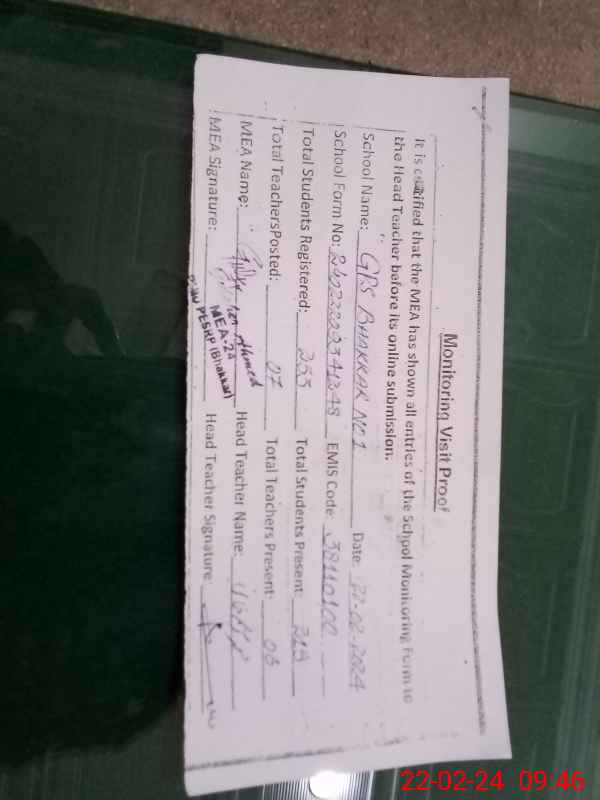 Monitoring Visit Proof
It is certified that the MEA has shown all entries of the School Monitoring Form to
the Head Teacher before its online submission.
School Name: GPS BHAKKAR NO1 Date: 22-02-2024
School Form No: EMIS Code 38110100
Total Students Registered: 255 Total Students Present: 219
Total TeachersPosted: 07 Total Teachers Present: 06
MEA Name: Ahmed Head Teacher Name:
MEA Signature: MEA-24 Head Teacher Signature:
PESRP (Bhakkar)
22-02-24 09:46